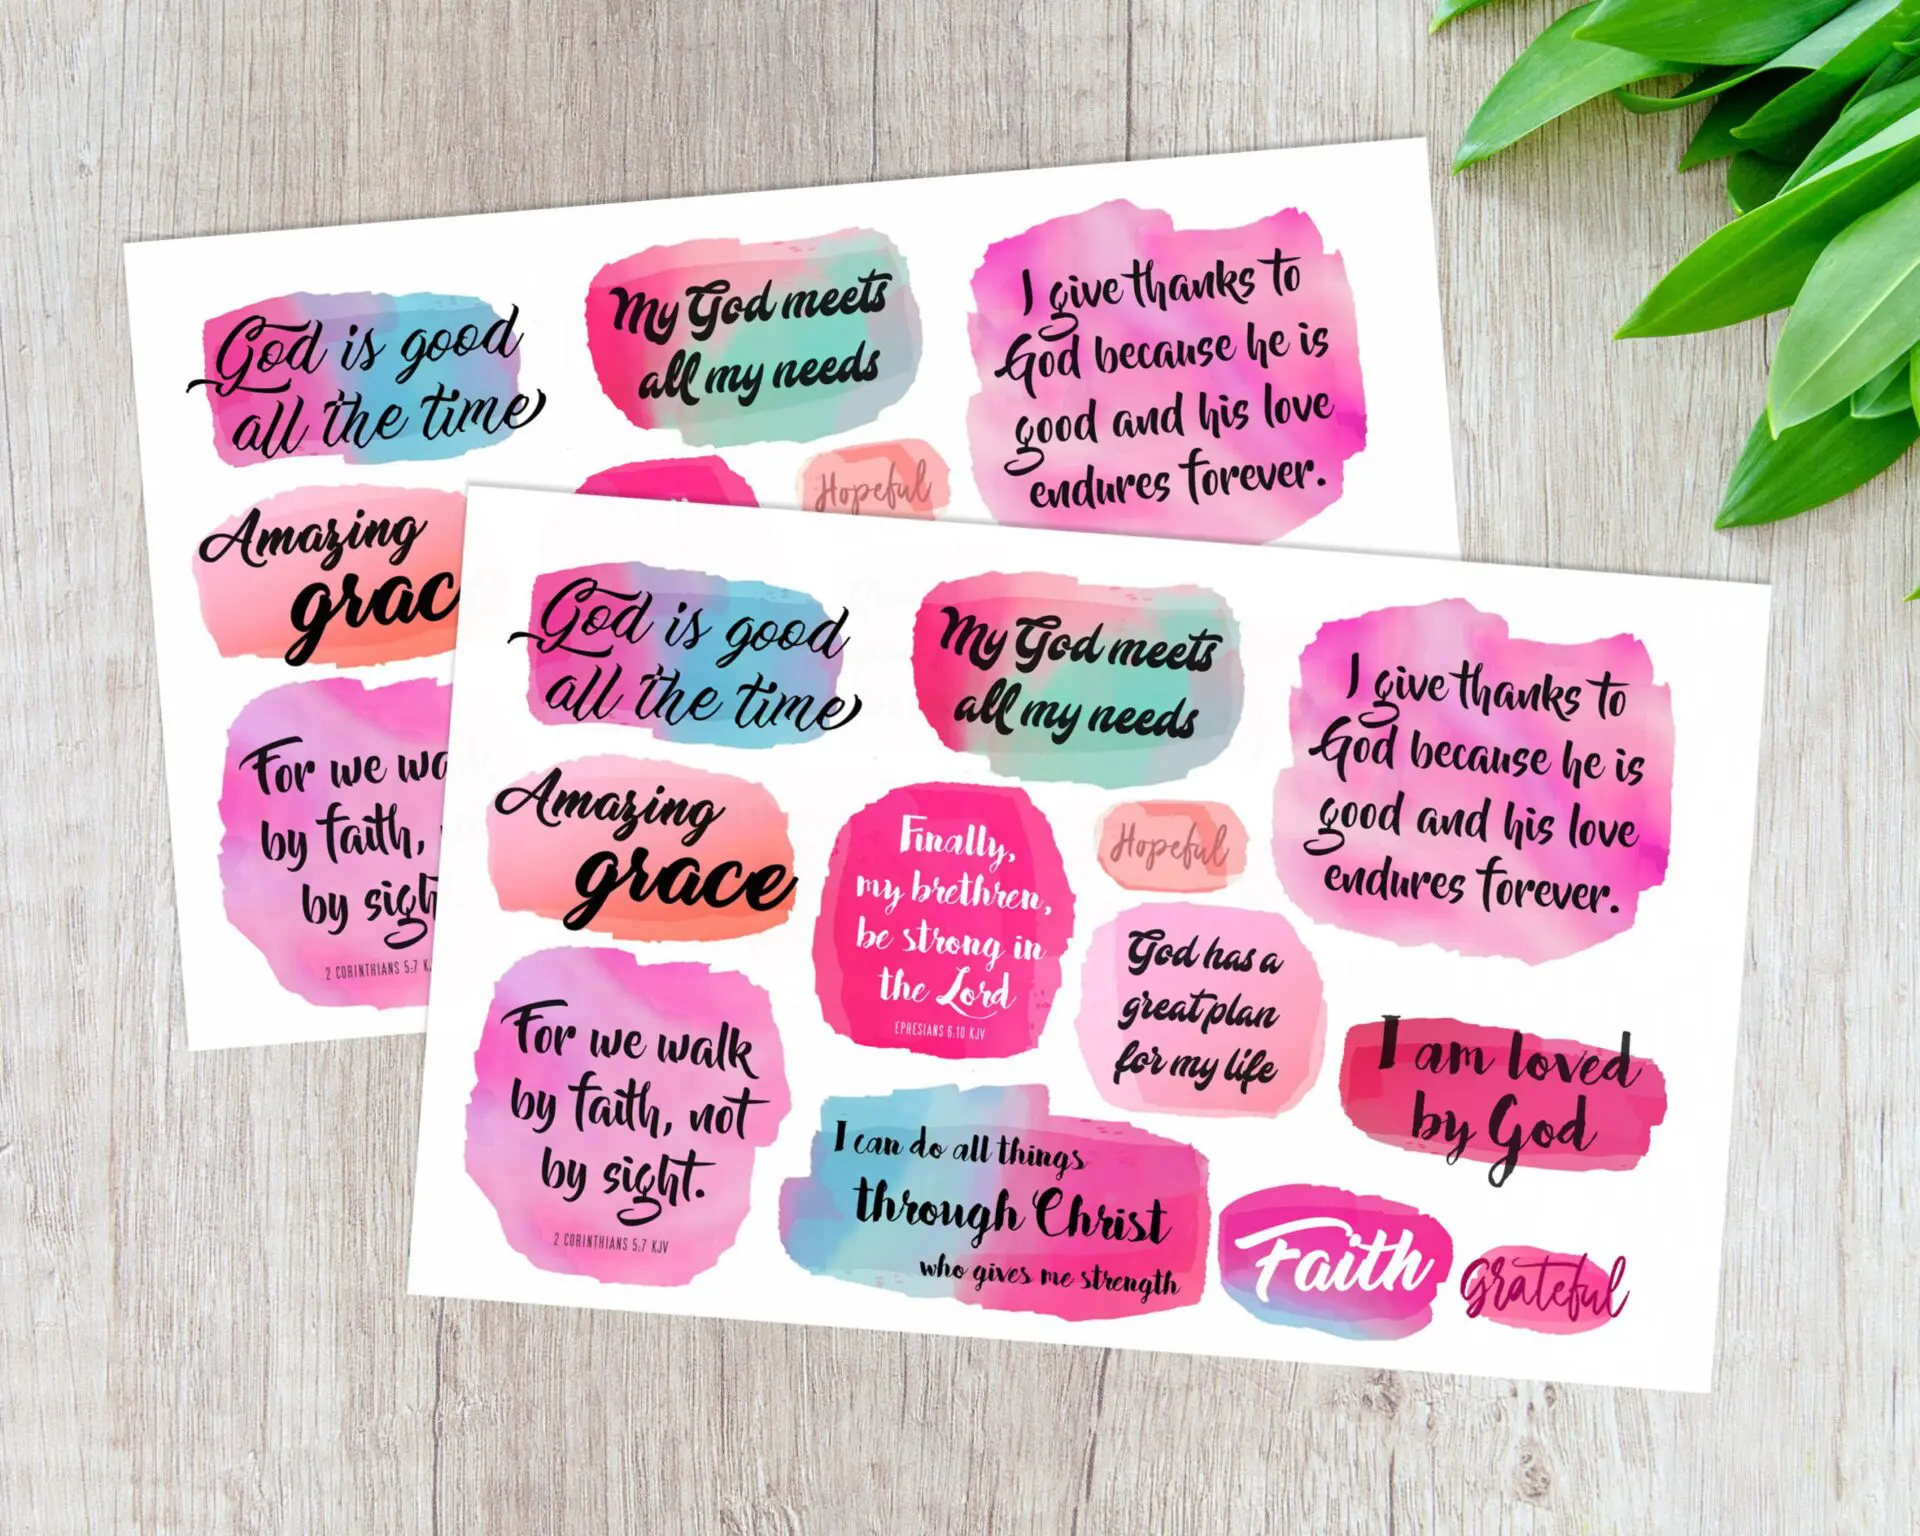 God is good
all the time
My God meets
all my needs
I give thanks to
God because he is
good and his love
endures forever.
Amazing
grac
Hopeful
For we wa
by faith,
by sigh
2 CORINTHIANS 5:7 K
God is good
all the time
My God meets
all my needs
I give thanks to
God because he is
good and his love
endures forever.
Amazing
grace
Finally,
my brethren,
be strong in
the Lord
EPHESIANS 6:10 KJV
Hopeful
God has a
great plan
for my life
For we walk
by faith, not
by sight.
2 CORINTHIANS 5:7 KJV
I can do all things
through Christ
who gives me strength
I am loved
by God
Faith
grateful